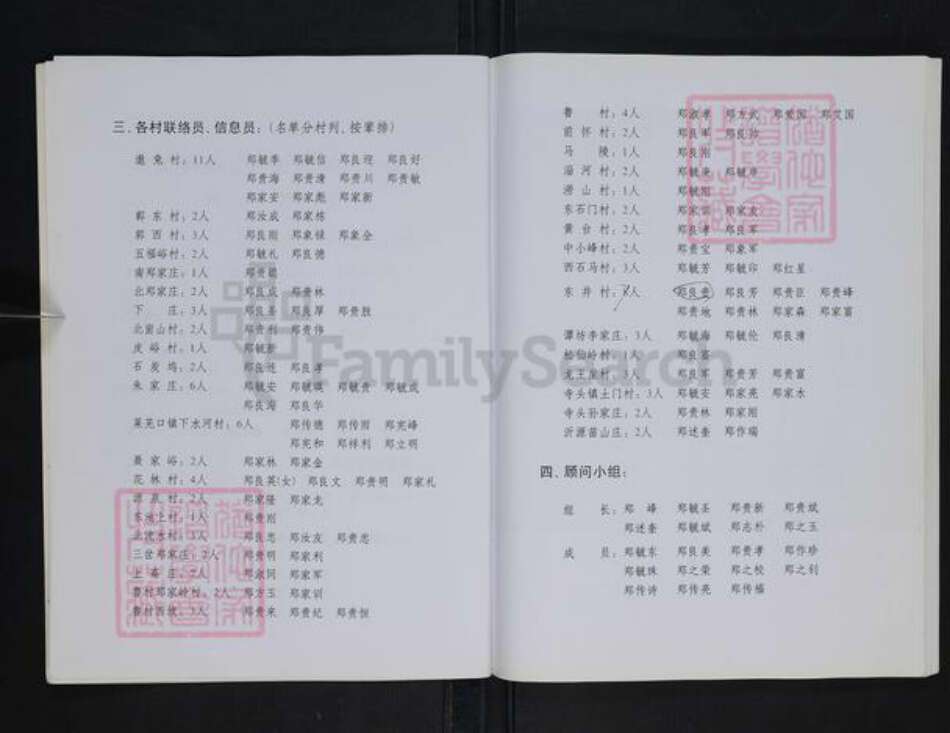 三、各村联络员、信息员：（名单分村列、按辈排）
逯家村：11人 郑毓季 郑毓信 郑良迎 郑良好
郑贵海 郑贵清 郑贵川 郑贵敏
郑家安 郑家彪 郑家新
郭东村：2人 郑汝成 郑家栋
郭西村：3人 郑良刚 郑象禄 郑象全
五福峪村：2人 郑毓礼 郑良德
南郑家庄：1人 郑贵聪
北郑家庄：2人 郑良成 郑贵林
下庄：3人 郑良圣 郑良厚 郑贵胜
北崮山村：2人 郑贵利 郑贵伟
皮峪村：1人 郑毓新
石炭坞：2人 郑良进 郑良泽
朱家庄：6人 郑毓安 郑毓琪 郑毓贵 郑毓成
郑良海 郑良华
莱芜口镇下水河村：6人 郑传德 郑传雨 郑宪峰
郑宪和 郑祥利 郑立明
聂家峪：2人 郑家林 郑家金
花林村：4人 郑良英（女） 郑良文 郑贵明 郑家礼
源泉村：2人 郑家隆 郑家龙
东池上村：1人 郑贵刚
北流水村：3人 郑良忠 郑汝友 郑贵忠
三岔郑家庄：2人 郑贵明 郑家利
上高庄：2人 郑家同 郑家军
鲁村郑家岭村：2人 郑方玉 郑家训
鲁村西坡：3人 郑贵来 郑贵纪 郑贵恒
鲁村：4人 郑淑孝 郑方武 郑爱国 郑艾国
前怀村：2人 郑良军 郑良帅
马陵：1人 郑良刚
沿河村：2人 郑毓庚
涝山村：1人 郑毓阳
东石门村：2人 郑家训 郑家友
黄台村：2人 郑良孝 郑良军
中小峰村：2人 郑贵宝 郑象军
西石马村：3人 郑毓芳 郑毓印 郑红星
东井村：人 郑良贵 郑良芳 郑贵臣 郑贵峰
郑贵地 郑贵林 郑家森 郑家富
潭坊李家庄：3人 郑毓海 郑毓伦 郑良清
松仙岭村：1人 郑良富
龙王崖村：3人 郑良军 郑贵芳 郑贵富
寺头镇土门村：3人 郑毓安 郑家亮 郑家水
寺头孙家庄：2人 郑贵林 郑家刚
沂源苗山庄：2人 郑述奎 郑作瑞
四、顾问小组：
组长：郑峰 郑毓圣 郑贵新 郑贵斌
郑述奎 郑毓斌 郑志朴 郑之玉
成员：郑毓东 郑良美 郑贵孝 郑作珍
郑毓珠 郑之荣 郑之校 郑之钊
郑传诗 郑传亮 郑传福
FamilySearch